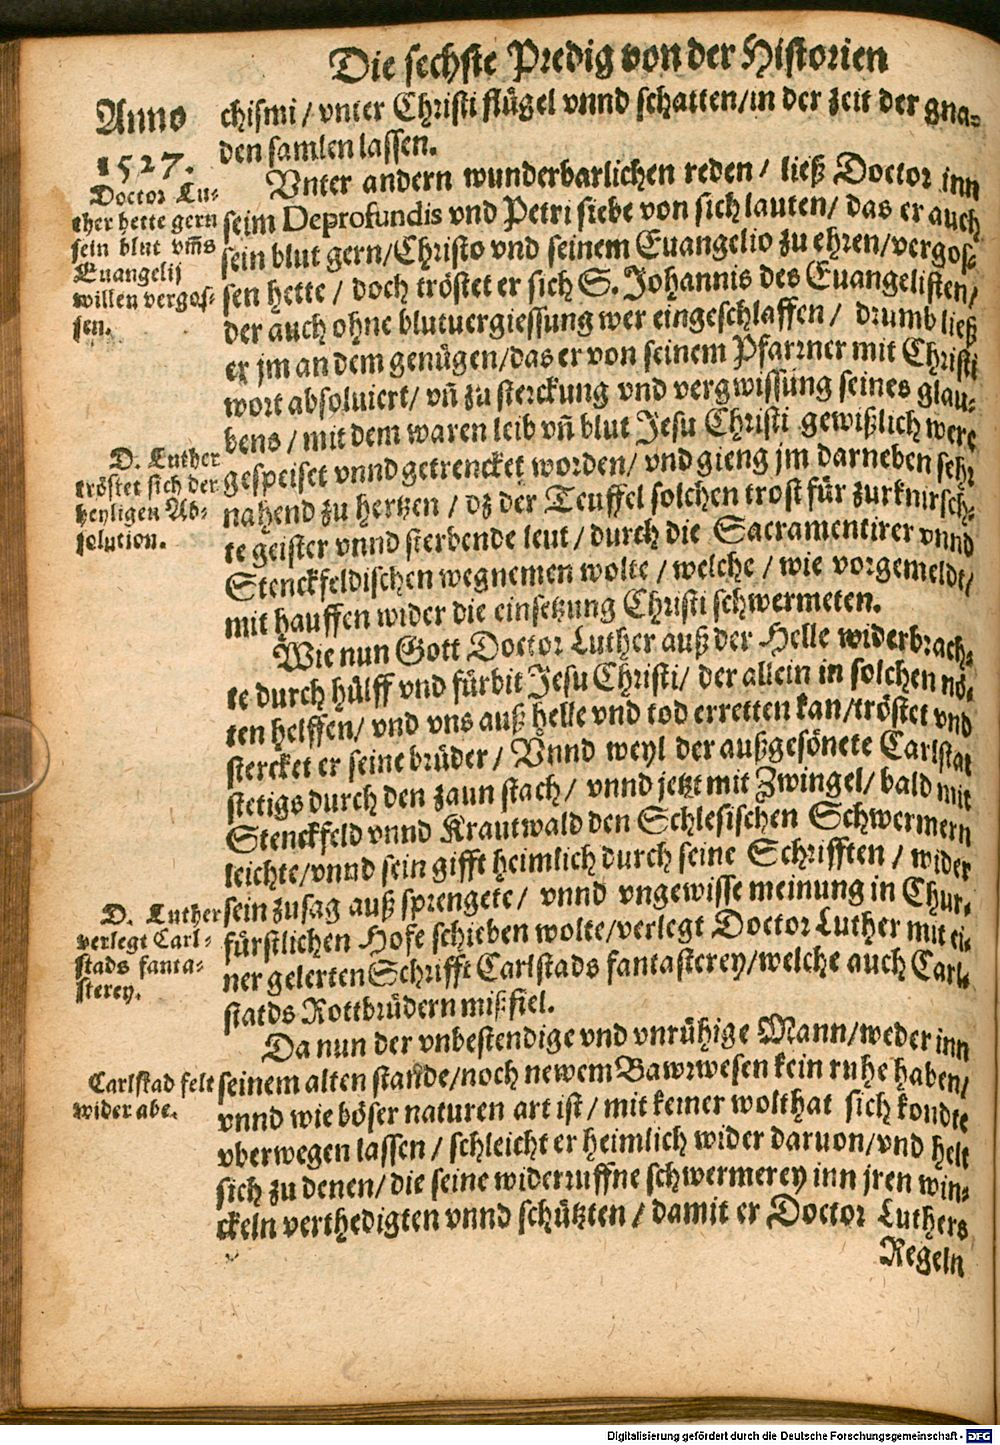 Die sechste Predig von der Historien
Anno
1527.
chismi / vnter Christi flügel vnnd schatten/in der zeit der gna-
den samlen lassen.
Vnter andern wunderbarlichen reden / ließ Doctor inn
seim Deprofundis vnd Petri siebe von sich lauten/ das er auch
sein blut gern/Christo vnd seinem Euangelio zu ehren/vergos-
sen hette / doch tröstet er sich S. Johannis des Euangelisten/
der auch ohne blutuergiessung wer eingeschlaffen / drumb ließ
er jm an dem genügen/das er von seinem Pfarrner mit Christi
wort absoluiert/ vñ zu sterckung vnd vergwissung seines glau-
bens / mit dem waren leib vñ blut Jesu Christi gewißlich were
gespeiset vnnd getrencket worden/ vnd gieng jm darneben sehr
nahend zu hertzen / dz der Teuffel solchen trost für zurknirsch-
te geister vnnd sterbende leut / durch die Sacramentirer vnnd
Stenckfeldischen wegnemen wolte / welche / wie vorgemeldt/
mit hauffen wider die einsetzung Christi schwermeten.
Doctor Lu-
ther hette gern
sein blut vm̃s
Euangelij
willen vergos-
sen.
D. Luther
tröstet sich der
heyligen Ab-
solution.
Wie nun Gott Doctor Luther auß der Helle widerbrach-
te durch hülff vnd fürbit Jesu Christi/ der allein in solchen nö-
ten helffen/ vnd vns auß helle vnd tod erretten kan/tröstet vnd
stercket er seine brüder / Vnnd weyl der außgesönete Carlstat
stetigs durch den zaun stach/ vnnd jetzt mit Zwingel/ bald mit
Stenckfeld vnnd Krautwald den Schlesischen Schwermern
leichte/vnnd sein gifft heimlich durch seine Schrifften / wider
sein zusag auß sprengete/ vnnd vngewisse meinung in Chur-
fürstlichen Hofe schieben wolte/verlegt Doctor Luther mit ei-
ner gelerten Schrifft Carlstads fantasterey/welche auch Carl-
statds Rottbrüdern mißfiel.
D. Luther
verlegt Carl-
stads fanta-
sterey.
Da nun der vnbestendige vnd vnrühige Mann/weder inn
seinem alten stande/noch newem Bawrwesen kein ruhe haben/
vnnd wie böser naturen art ist / mit keiner wolthat sich kondte
vberwegen lassen / schleicht er heimlich wider daruon/vnd helt
sich zu denen/ die seine widerruffne schwermerey inn jren win-
ckeln verthedigten vnnd schützten / damit er Doctor Luthers
Carlstad felt
wider abe.
Regeln
Digitalisierung gefördert durch die Deutsche Forschungsgemeinschaft - DFG